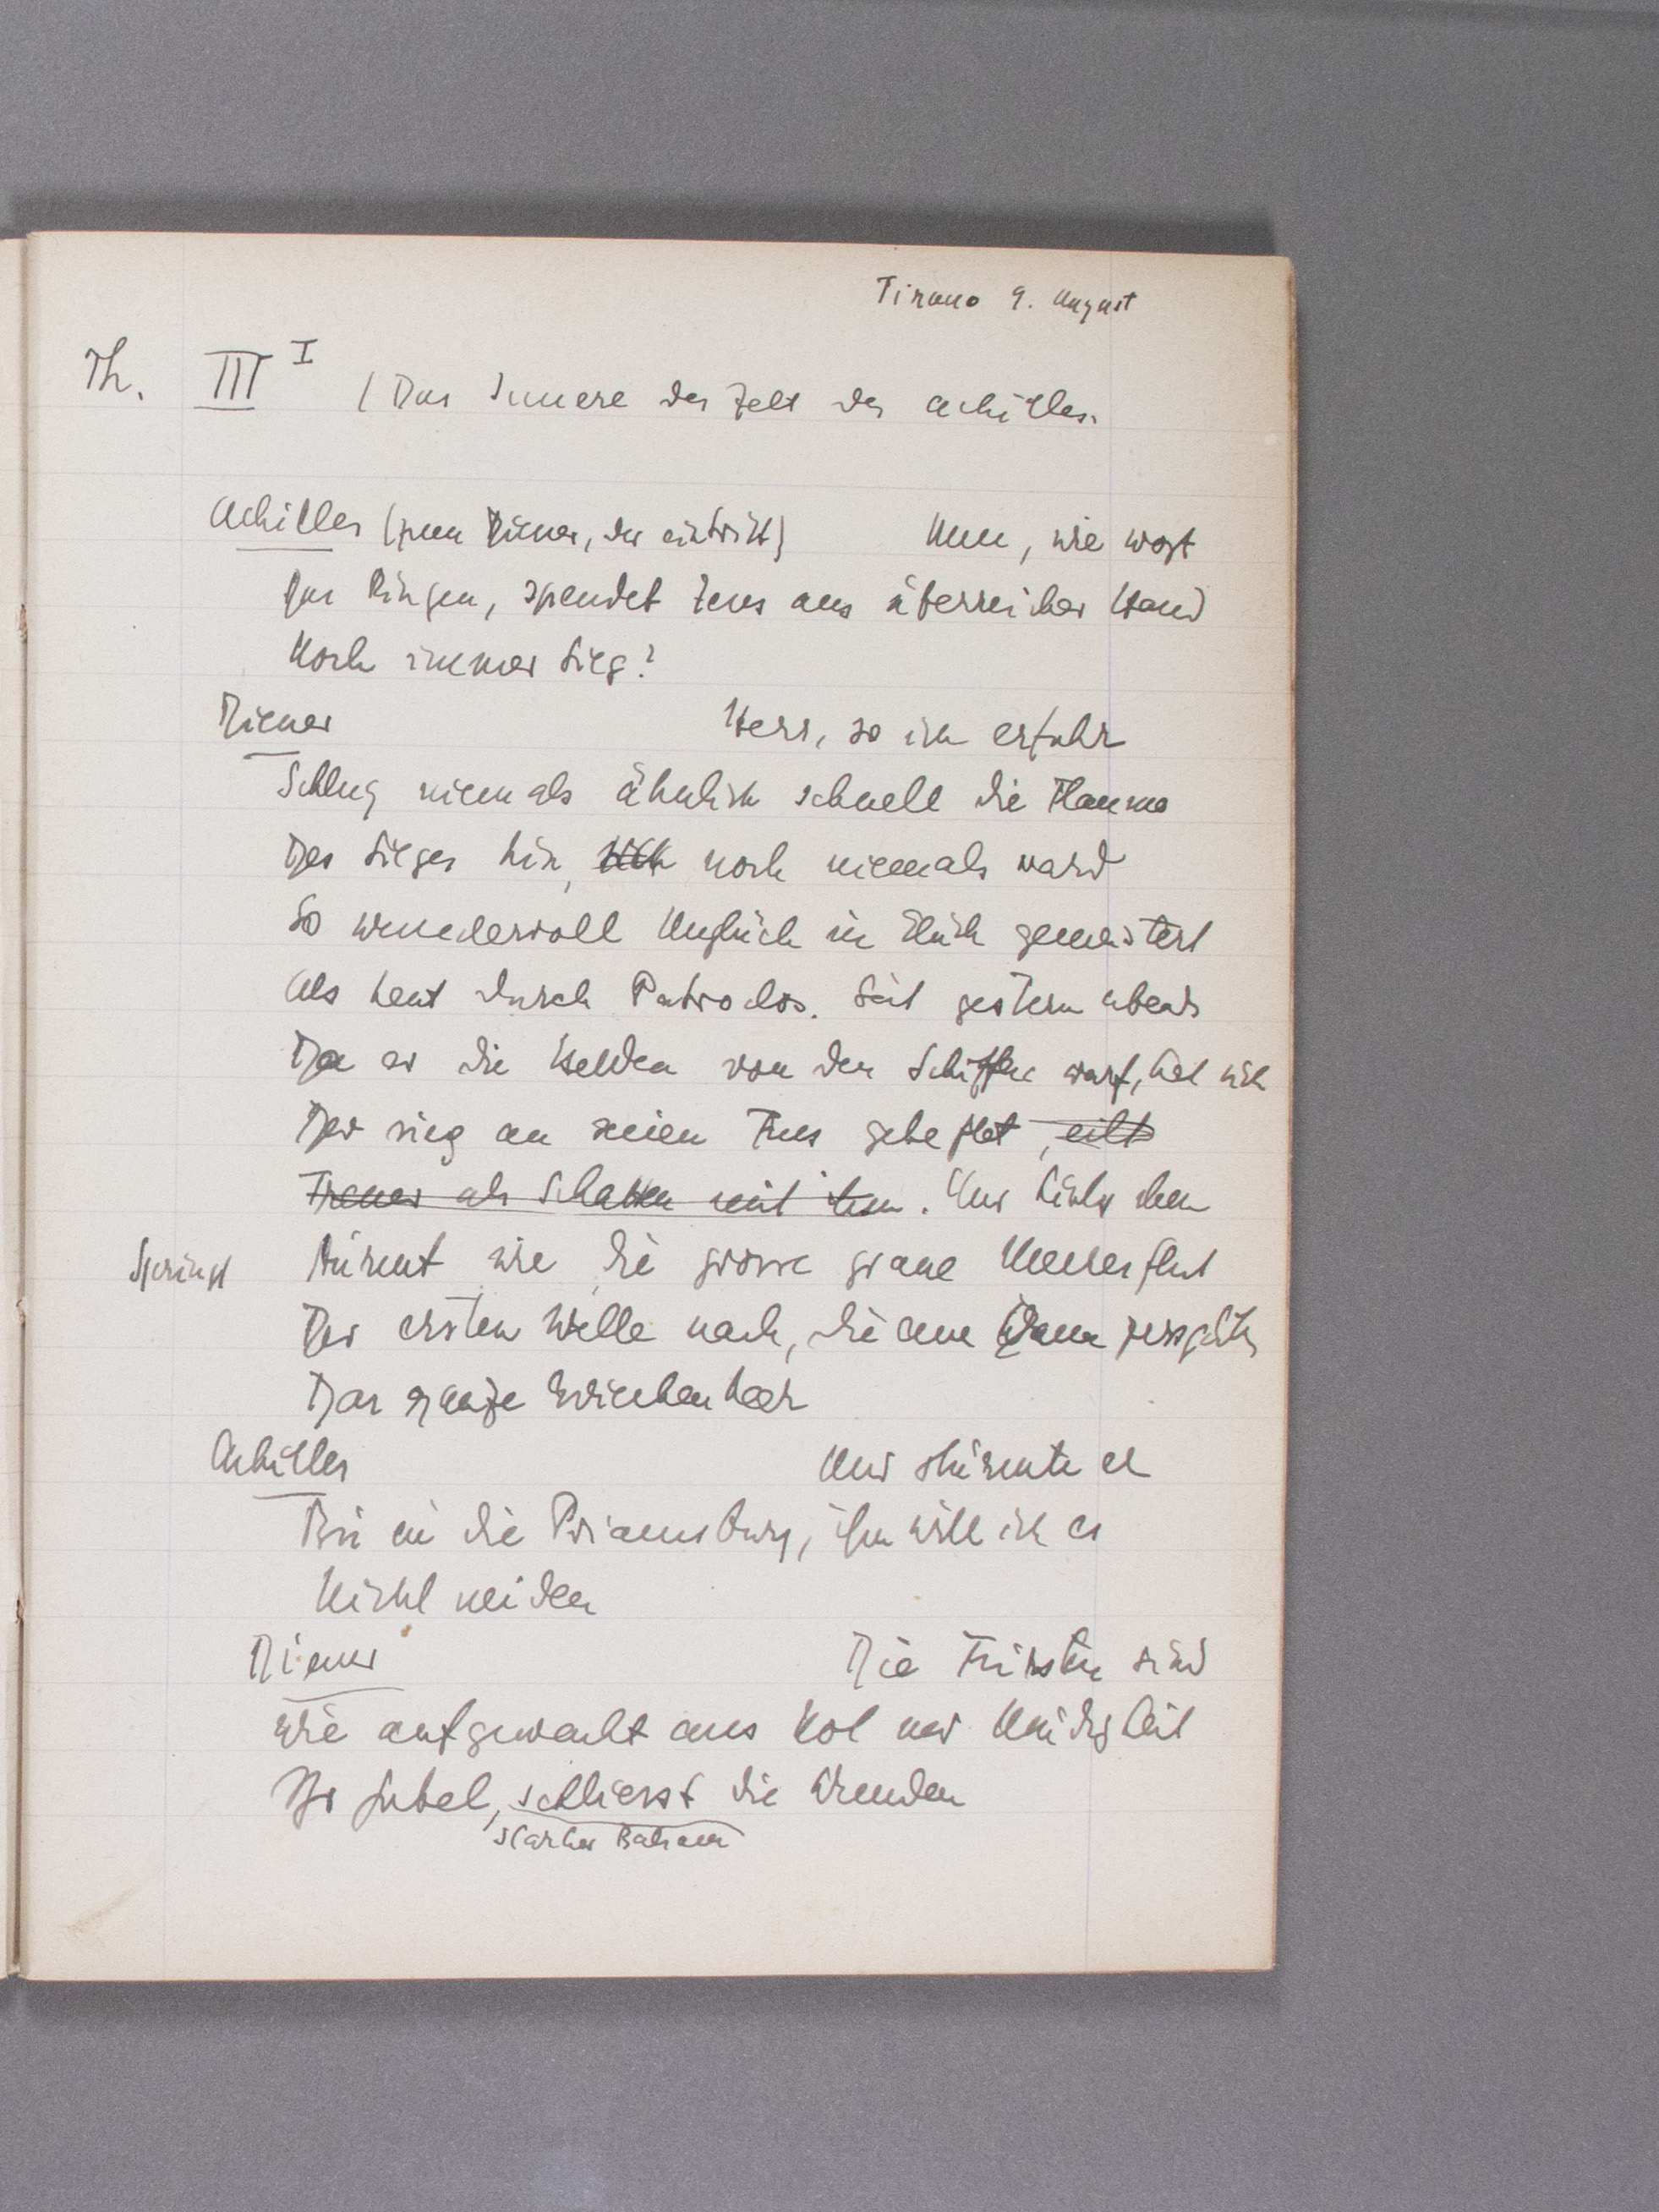 Tirano 9. August
Th. III I (Das Innere des Zelt des Achilles.
Achilles (zum Diener, der eintritt) Nun, wie wogt
Das Ringen, spendet Zeus aus überreicher Hand
Noch immer Sieg?
Diener Herr, so ich erfuhr
Schlug niemals ähnlich schnell die Flamme
Des Sieges hin, noch niemals ward
So wundervoll Unglück in Glück gemeistert
Als heut durch Patroclos. Seit gestern abends
Da er die Helden von den Schiffen warf, hat sich
Der Sieg an seinen Fuss geheftet, eilt
Treuer als Schatten mit ihm. Und
Springt Stürmt wie die grosse graue Meeresflut
Der ersten Welle nach, die am Damm
Das ganze Griechenheer
Achilles Und stürmte er
Bis in die Priamsburg, ihm will ich es
Nicht neiden
Diener Die Fürsten sind
Wie aufgewacht aus Not und Müdigkeit
Ihr Jubel, schliesst die Wunden
starker Balsam